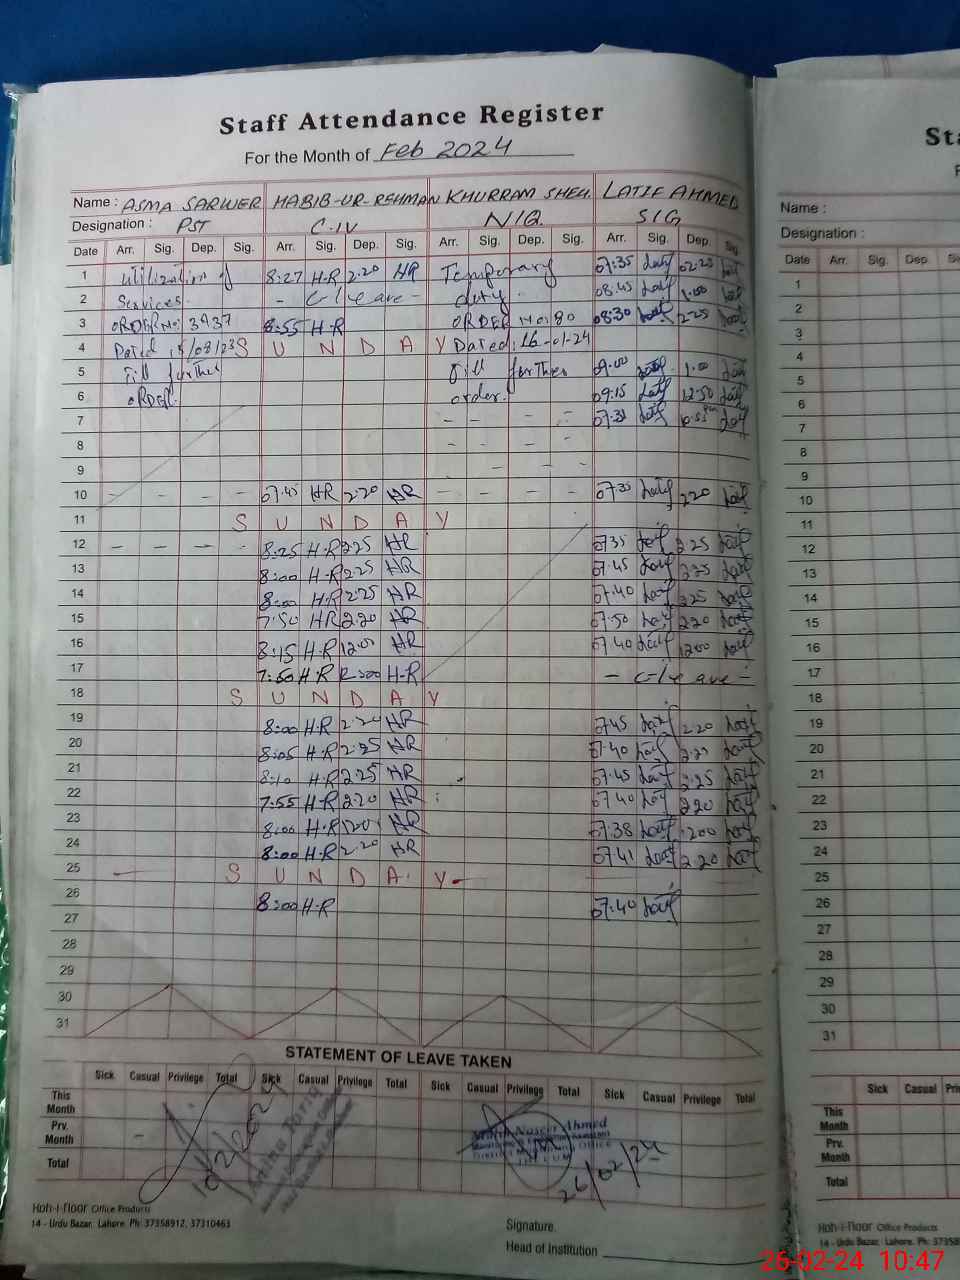 Staff Attendance Register
For the Month of Feb 2024
Name : ASMA SARWER HABIB-UR-REHMAN KHURRAM SHEH. LATIF AHMED
Designation : PST C-IV N/Q. S/G
Date Arr. Sig. Dep. Sig. Arr. Sig. Dep. Sig. Arr. Sig. Dep. Sig. Arr. Sig. Dep. Sig.
1 Utilization of 8:27 H-R 2:20 HR Temporary 07:35 Latif 02:20 Latif
2 Services. - C-leave - duty. 08:45 Latif 1:00 Latif
3 ORDER No: 3937 8:55 H-R ORDER No: 80 08:30 Latif 2:25 Latif
4 Dated, /08/23 S U N D A Y Dated: 16-01-24
5 Till further Till further 09:00 Latif 1:00 Latif
6 ORDER. order. 09:15 Latif 12:50 Latif
7 - - - - 07:31 Latif Latif
8 - - - -
9 - - -
10 - - - - 07:45 HR 2:20 HR - - - - 07:35 Latif 2:20 Latif
11 S U N D A Y
12 - - - - 8:25 H-R 2:25 HR 07:35 Latif 2:25 Latif
13 8:00 H-R 2:25 HR 07:45 Latif 2:25 Latif
14 8:00 H-R 2:25 HR 07:40 Latif 2:25 Latif
15 7:50 HR 2:20 HR 07:50 Latif 2:20 Latif
16 8:15 H-R 12:00 HR 07:40 Latif 12:00 Latif
17 7:50 H-R H-R - C-leave -
18 S U N D A Y
19 8:00 H-R 2:20 HR 07:45 Latif 2:20 Latif
20 8:05 H-R 2:25 HR 07:40 Latif 2:25 Latif
21 8:10 H-R 2:25 HR 07:45 Latif 2:25 Latif
22 7:55 H-R 2:20 HR 07:40 Latif 2:20 Latif
23 8:00 H-R 1200 HR 07:38 Latif 1200 Latif
24 8:00 H-R 2:20 HR 07:41 Latif 2:20 Latif
25 S U N D A Y
26 8:00 H-R 07:40 Latif
27
28
29
30
31
STATEMENT OF LEAVE TAKEN
Sick Casual Privilege Total Sick Casual Privilege Total Sick Casual Privilege Total Sick Casual Privilege Total
This Month
Prv. Month
Total
Naseer Ahmed
26/02/24
Koh-i-Noor Office Products
14 - Urdu Bazar, Lahore. Ph: 37358912, 37310463
Signature.
Head of Institution
Sta
Name :
Designation :
Date Arr. Sig. Dep.
1
2
3
4
5
6
7
8
9
10
11
12
13
14
15
16
17
18
19
20
21
22
23
24
25
26
27
28
29
30
31
Sick Casual
This Month
Prv. Month
Total
Koh-i-Noor Office Products
14 - Urdu Bazar, Lahore. Ph:
26-02-24 10:47